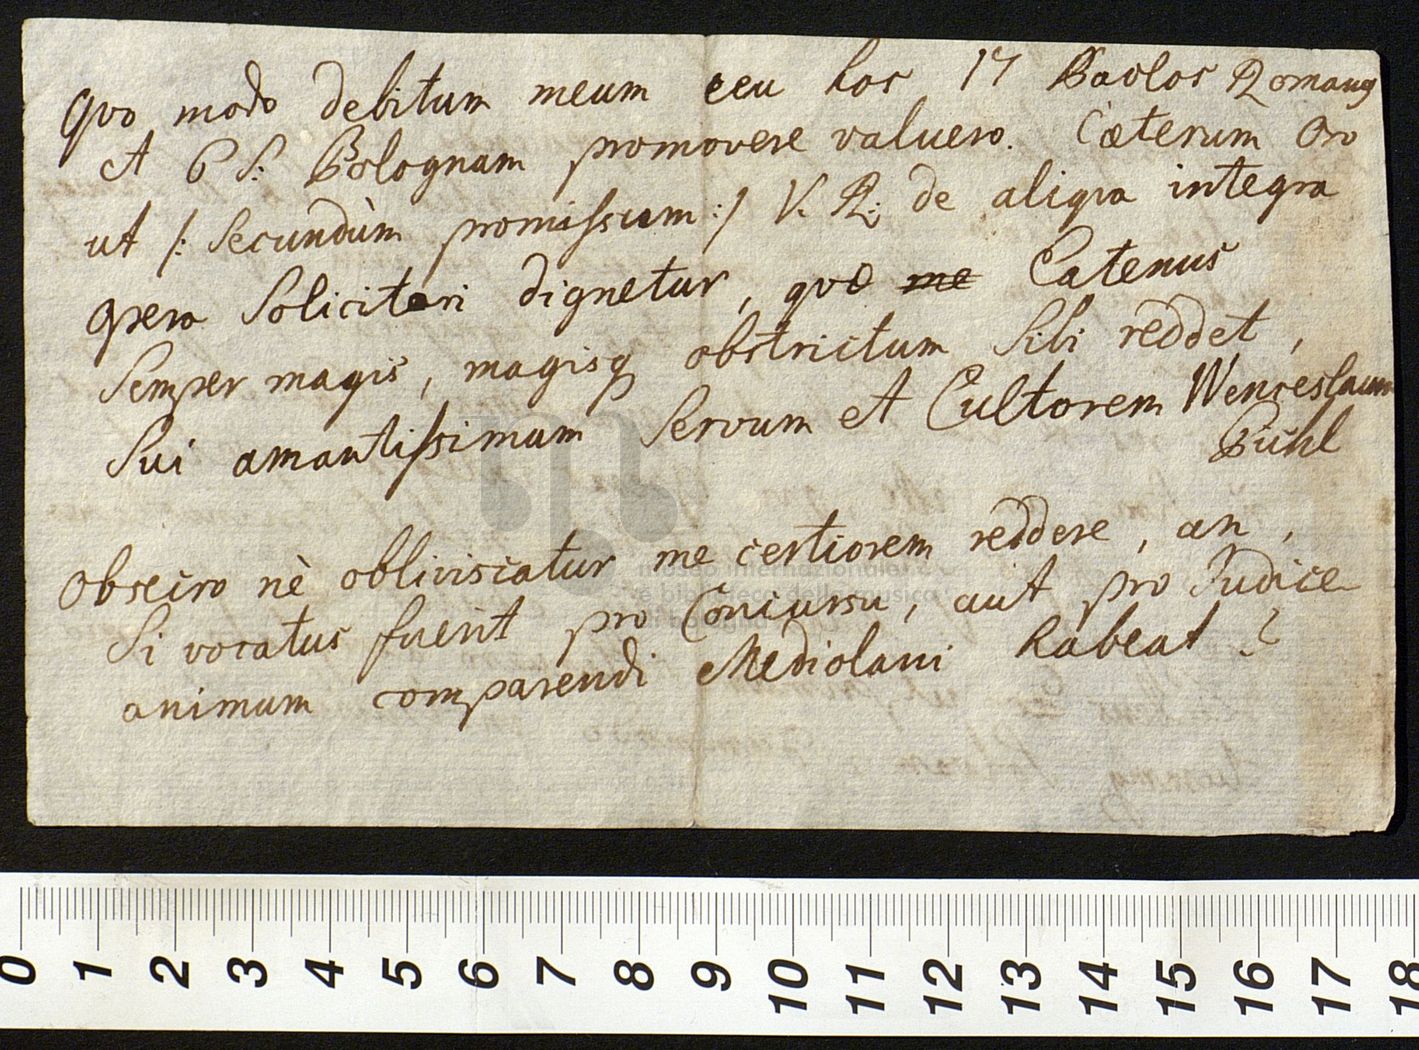 Quo modo debitum meum ceu hos 17 Paolos Romanos
et 6 S: Bolognam promovere valuero. Cæterum Oro
ut /: Secundùm promissum :/ V. R: de aliqua integra
opera Solicitari dignetur, quæ me Catenus
Semper magis, magisq obstrictum Sibi reddet,
Sui amantissimum Servum et Cultorem Wenceslaum
Pühl
Obsecro nè obliviscatur me certiorem reddere, an,
Si vocatus fuerit pro Concursu, aut pro Judice
animum comparendi Mediolani habeat?
museo internazionale
e biblioteca della musica
di bologna
0 1 2 3 4 5 6 7 8 9 10 11 12 13 14 15 16 17 18